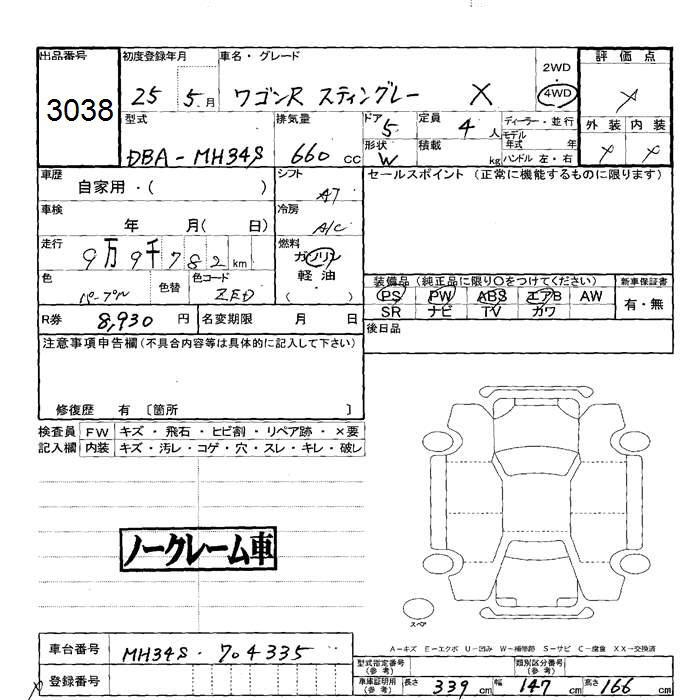 出品番号
3038
初度登録年月
25 5月
車名・グレード
ワゴンR スティングレー X
2WD
4WD
評価点
外装 内装
型式
DBA-MH34S
排気量
660 cc
ドア 5
形状 W
定員 4 人
積載 kg
ディーラー・並行
モデル
年式 年
ハンドル 左・右
車歴
自家用・( )
シフト
A7
セールスポイント (正常に機能するものに限ります)
車検
年 月( 日)
冷房
A/C
走行
9万9千782km
燃料
ガソリン
軽油
( )
色
パープル
色替
色コード
ZED
装備品 (純正品に限り○をつけてください)
PS PW ABS エアB AW
SR ナビ TV カワ
新車保証書
有・無
R券 8,930 円
名変期限 月 日
後日品
注意事項申告欄(不具合内容等は具体的に記入して下さい)
修復歴 有 〔箇所 〕
検査員
記入欄
FW キズ・飛石・ヒビ割・リペア跡・×要
内装 キズ・汚レ・コゲ・穴・スレ・キレ・破レ
ノークレーム車
スペア
A-キズ E-エクボ U-凹み W-補修跡 S-サビ C-腐食 XX-交換済
車台番号
MH34S-704335
登録番号
型式指定番号
(参考)
類別区分番号
(参考)
車庫証明用
(参考)
長さ 339 cm 幅 147 cm 高さ 166 cm